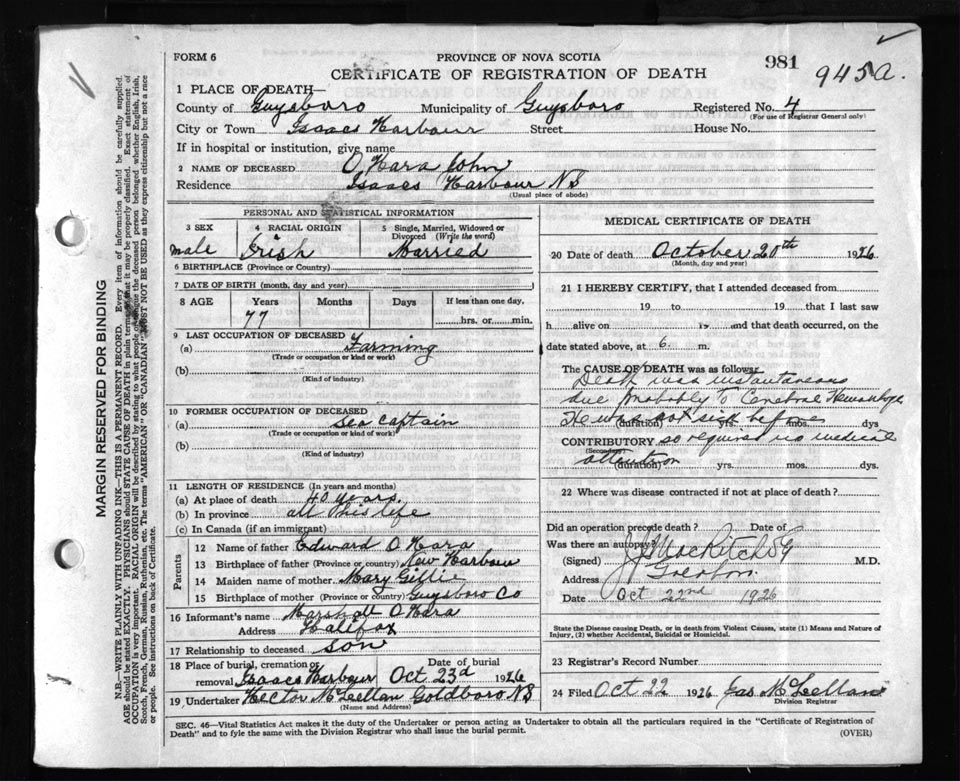 FORM 6
PROVINCE OF NOVA SCOTIA
CERTIFICATE OF REGISTRATION OF DEATH
981
945a.
1 PLACE OF DEATH—
County of Guysboro Municipality of Guysboro Registered No. 4
(For use of Registrar General only)
City or Town Isaacs Harbour Street House No.
If in hospital or institution, give name
2 NAME OF DECEASED O Hara John
Residence Isaacs Harbour N S
(Usual place of abode)
PERSONAL AND STATISTICAL INFORMATION
3 SEX 4 RACIAL ORIGIN 5 Single, Married, Widowed or Divorced (Write the word)
male Irish Married
6 BIRTHPLACE (Province or Country)
7 DATE OF BIRTH (month, day and year)
8 AGE Years Months Days If less than one day,
77 hrs. or min.
9 LAST OCCUPATION OF DECEASED
(a) Farming
(Trade or occupation or kind of work)
(b)
(Kind of industry)
10 FORMER OCCUPATION OF DECEASED
(a) Sea captain
(Trade or occupation or kind of work)
(b)
(Kind of industry)
11 LENGTH OF RESIDENCE (In years and months)
(a) At place of death 40 years.
(b) In province all his life
(c) In Canada (if an immigrant)
Parents
12 Name of father Edward O Hara
13 Birthplace of father (Province or country) New Harbour
14 Maiden name of mother Mary Gillie
15 Birthplace of mother (Province or country) Guysboro Co
16 Informant's name Marshall O Hara
Address Halifax
17 Relationship to deceased son
18 Place of burial, cremation or removal Isaacs Harbour Date of burial Oct 23d 1926
19 Undertaker Hector McLellan Goldboro N S
(Name and Address)
MEDICAL CERTIFICATE OF DEATH
20 Date of death October 20th 1926
(Month, day and year)
21 I HEREBY CERTIFY, that I attended deceased from
19 to 19 that I last saw
h alive on 19 and that death occurred, on the
date stated above, at 6 m.
The CAUSE OF DEATH was as follows:
Death was instantaneous
due probably to Cerebral Hemorrhage
He was not sick before
(duration) yrs. mos. days
CONTRIBUTORY so required no medical
(Secondary)
attention
(duration) yrs. mos. dys.
22 Where was disease contracted if not at place of death?
Did an operation precede death? Date of
Was there an autopsy?
(Signed) M.D.
Address
Date Oct 22nd 1926
State the Disease causing Death, or in death from Violent Causes, state (1) Means and Nature of
Injury, (2) whether Accidental, Suicidal or Homicidal.
23 Registrar's Record Number
24 Filed Oct 22 1926 Jas McLellan
Division Registrar
SEC. 46—Vital Statistics Act makes it the duty of the Undertaker or person acting as Undertaker to obtain all the particulars required in the "Certificate of Registration of
Death" and to fyle the same with the Division Registrar who shall issue the burial permit.
(OVER)
MARGIN RESERVED FOR BINDING
N.B.—WRITE PLAINLY WITH UNFADING INK—THIS IS A PERMANENT RECORD. Every item of information should be carefully supplied.
AGE should be stated EXACTLY. PHYSICIANS should STATE CAUSE OF DEATH in plain terms, that it may be properly classified. Exact statement of
OCCUPATION is very important. RACIAL ORIGIN will be described by stating to what people or the deceased person belonged whether English, Irish,
Scotch, French, German, Russian, Ruthenian, etc. The terms "AMERICAN" OR "CANADIAN" MUST NOT BE USED as they express citizenship but not a race
or people. See instructions on back of Certificate.